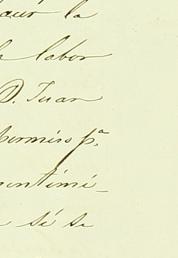 hacer la
la labor
D. Juan
permiso pª.
sentimi-
si se